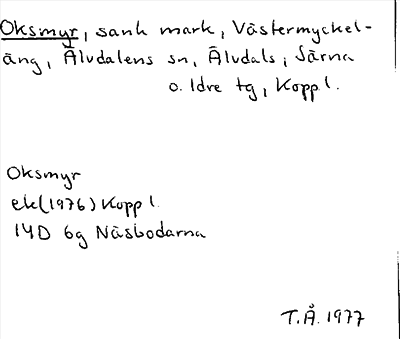 Oksmyr, sank mark, Västermyckel-
äng, Älvdalens sn, Älvdals, Särna
o. Idre tg, Kopp l.
Oksmyr
ek (1976) Kopp l.
14D 6g Näsbodarna
T.Å. 1977